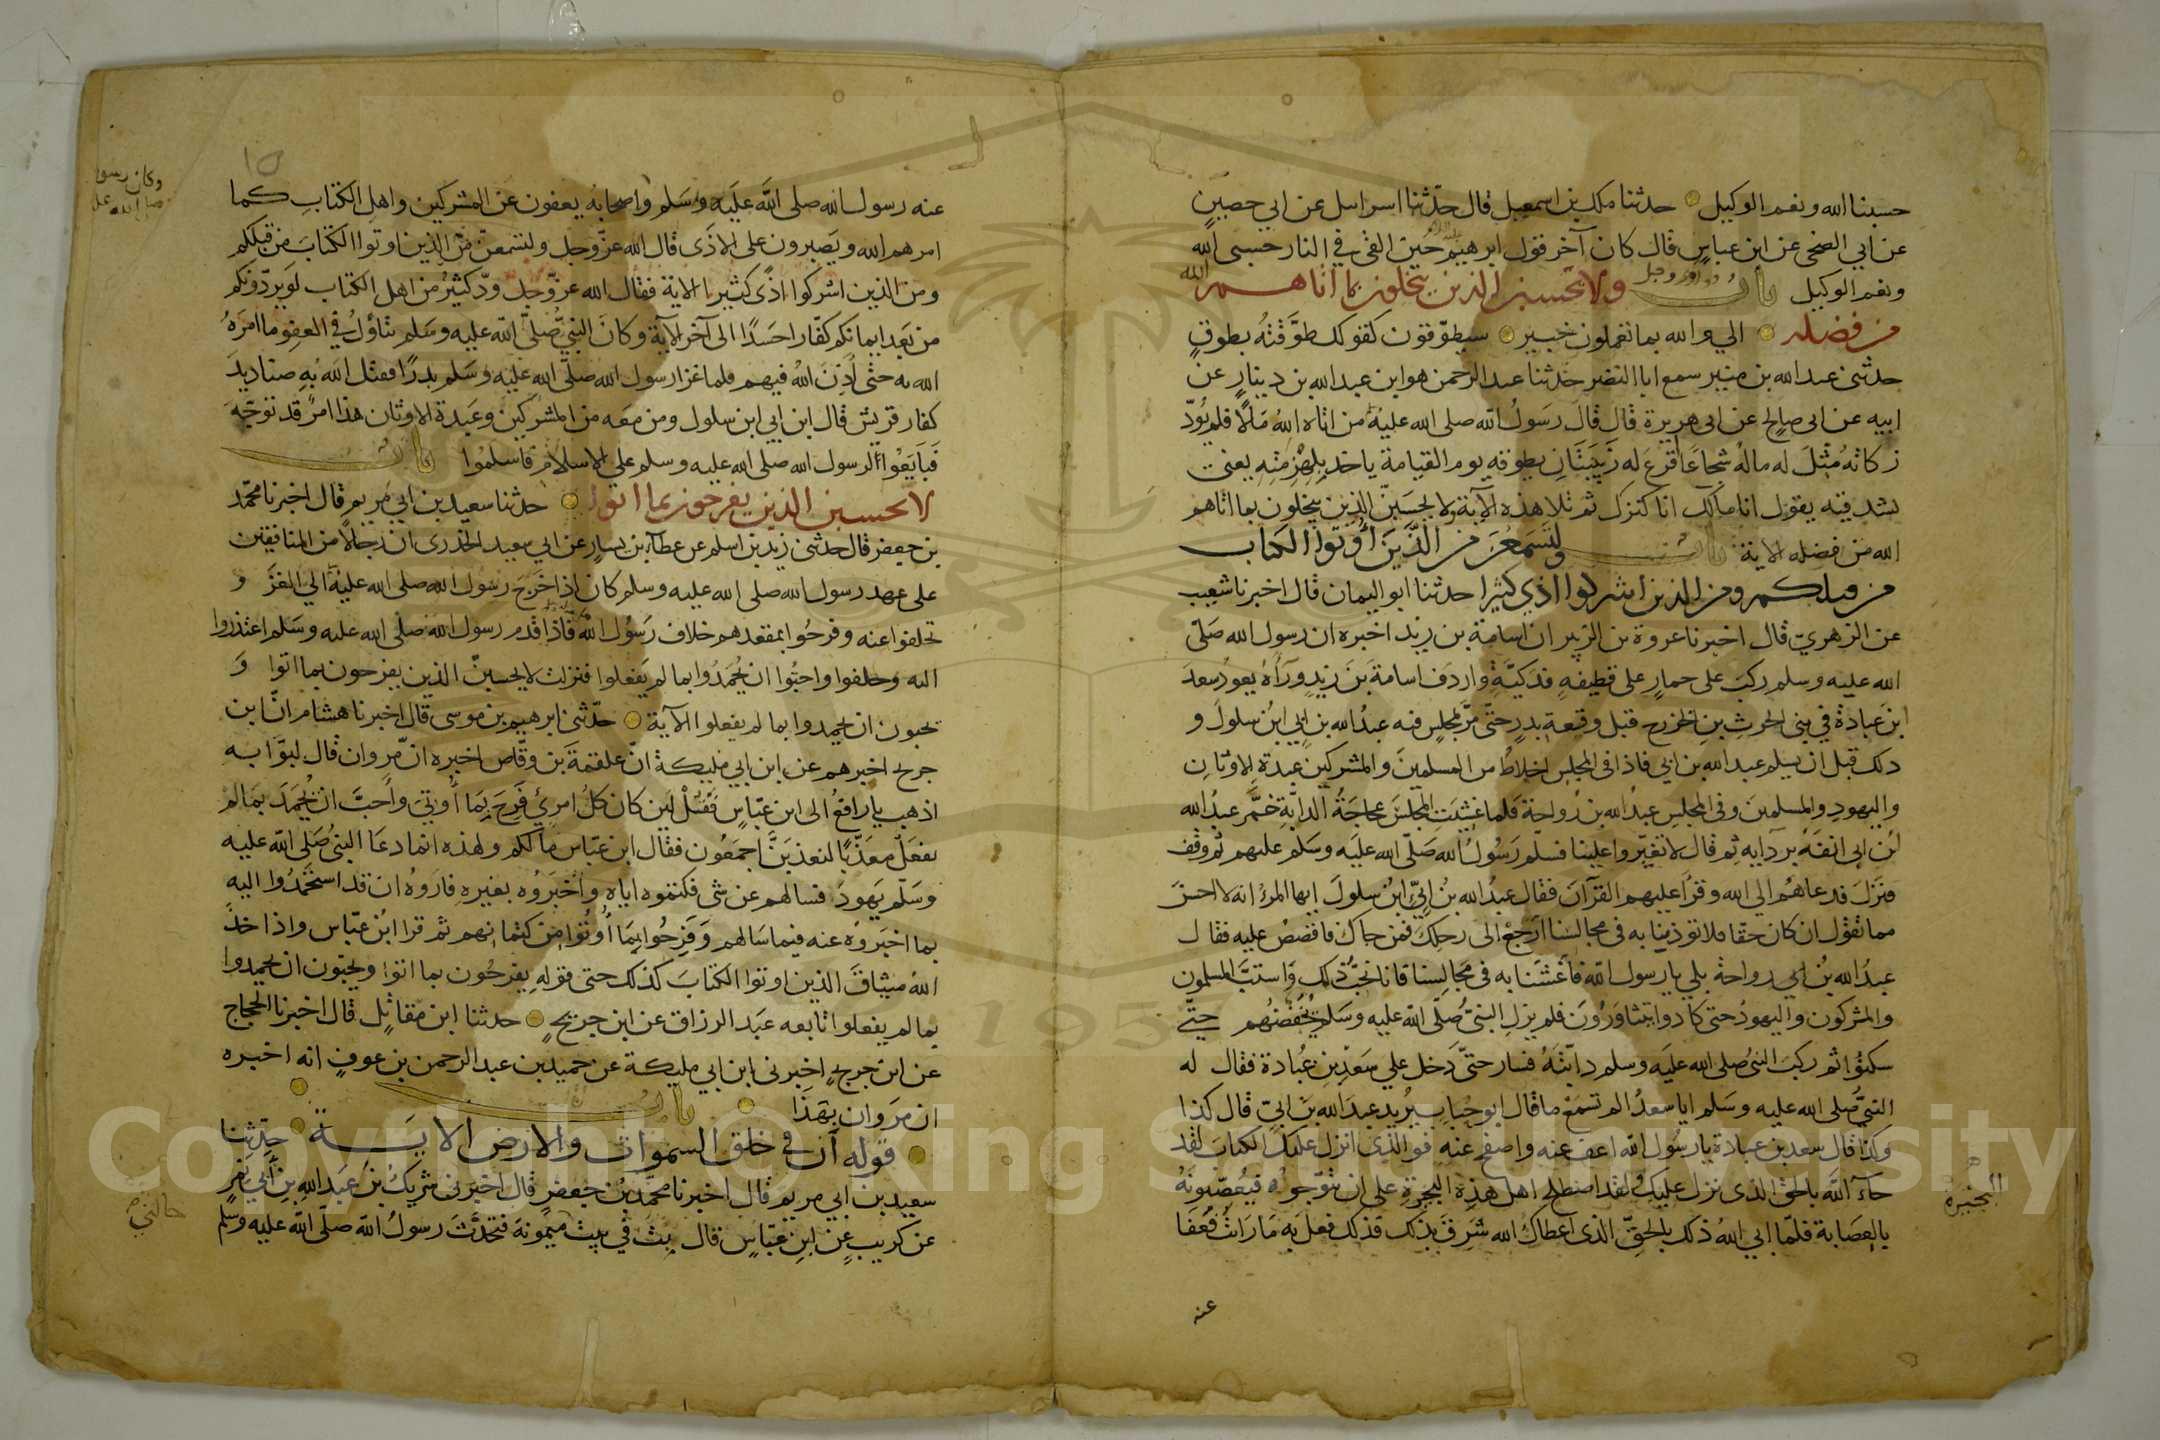 حسبنا الله ونعم الوكيل حدثنا ملك بن اسمعيل قال حدثنا اسرايل عن ابي حصين
عن ابي الضحى عن ابن عباس قال كان آخر قول ابرهيم حين القي في النار حسبي الله
ونعم الوكيل باب قوله عز وجل ولا تحسبن الذين يبخلون بما اتاهم الله
من فضله الي والله بما تعملون خبير سيطوقون كقولك طوقته بطوق
حدثني عبد الله بن منير سمع ابا النضر حدثنا عبد الرحمن هو ابن عبد الله بن دينار عن
ابيه عن ابي صالح عن ابي هريرة قال قال رسول الله صلى الله عليه من اتاه الله مالا فلم يؤد
زكاته مثل له ماله شجاعا اقرع له زبيبتان يطوقه يوم القيامة ياخذ بلهزمتيه يعني
بشدقيه يقول انا مالك انا كنزك ثم تلا هذه الآية ولا يحسبن الذين يبخلون بما اتاهم
الله من فضله الاية باب ولتسمعن من الذين أوتوا الكتاب
من قبلكم ومن الذين اشركوا اذى كثيرا حدثنا ابو اليمان قال اخبرنا شعيب
عن الزهري قال اخبرنا عروة بن الزبير ان اسامة بن زيد اخبره ان رسول الله صلى
الله عليه وسلم ركب على حمار على قطيفه فدكية واردف اسامة بن زيد وراءه يعود سعد
ابن عبادة في بني الحرث بن الخزرج قبل وقعة بدر حتى مر بمجلس فيه عبد الله بن ابي ابن سلول و
ذلك قبل ان يسلم عبد الله بن ابي فاذا في المجلس اخلاط من المسلمين والمشركين عبدة الاوثان
واليهود والمسلمين وفي المجلس عبد الله بن رواحة فلما غشيت المجلس عجاجة الدابة خمر عبد الله
بن ابي انفه بردايه ثم قال لا تغبروا علينا فسلم رسول الله صلى الله عليه وسلم عليهم ثم وقف
فنزل فدعاهم الي الله وقرأ عليهم القرآن فقال عبد الله بن ابي ابن سلول ايها المرء انه لا احسن
مما تقول ان كان حقا فلا توذينا به في مجالسنا ارجع الى رحلك فمن جاك فاقصص عليه فقال
عبد الله بن ابي رواحة بلي يا رسول الله فاغشنا به في مجالسنا فانا نحب ذلك واستب المسلمون
والمشركون واليهود حتى كادوا يتثاورون فلم يزل النبي صلى الله عليه وسلم يخفضهم حتي
سكنوا ثم ركب النبي صلى الله عليه وسلم دابته فسار حتى دخل علي سعد بن عبادة فقال له
النبي صلى الله عليه وسلم ايا سعد الم تسمع ما قال ابو حباب يريد عبد الله بن ابي قال كذا
وكذا قال سعد بن عبادة يا رسول الله اعف عنه واصفح عنه فو الذي انزل عليك الكتاب لقد
جآء الله بالحق الذي نزل عليك ولقد اصطلح اهل هذه البحرة على ان يتوجوه فيعصبونه
البحيرة
بالعصابة فلما ابي الله ذلك بالحق الذي اعطاك الله شرق بذلك فذلك فعل به ما رايت فعفا
عنه
١٥
عنه رسول الله صلى الله عليه وسلم واصحابه يعفون عن المشركين واهل الكتاب كما
وكان رسو
صلى الله عل
امرهم الله ويصبرون على الاذى قال الله عز وجل ولتسمعن من الذين اوتوا الكتاب من قبلكم
ومن الذين اشركوا اذى كثيرا الاية فقال الله عز وجل ود كثير من اهل الكتاب لو يردونكم
من بعد ايمانكم كفارا حسدا الى آخر الآية وكان النبي صلى الله عليه وسلم يتاول في العفو ما امره
الله به حتى أذن الله فيهم فلما غزا رسول الله صلى الله عليه وسلم بدرا فقتل الله به صناديد
كفار قريش قال ابن ابي ابن سلول ومن معه من المشركين وعبدة الاوثان هذا امر قد توجه
فبايعوا الرسول الله صلى الله عليه وسلم على الاسلام فاسلموا باب
لا تحسبن الذين يفرحون بما اتوا حدثنا سعيد بن ابي مريم قال اخبرنا محمد
بن جعفر قال حدثني زيد بن اسلم عن عطآء بن يسار عن ابي سعيد الخدري ان رجالا من المنافقين
على عهد رسول الله صلى الله عليه وسلم كان اذا خرج رسول الله صلى الله عليه الي الغزو
تخلفوا عنه وفرحوا بمقعدهم خلاف رسول الله فاذا قدم رسول الله صلى الله عليه وسلم اعتذروا
اليه وحلفوا واحبوا ان يحمدوا بما لم يفعلوا فنزلت لا يحسبن الذين يفرحون بما اتوا و
يحبون ان يحمدوا بما لم يفعلوا الآية حدثني ابرهيم بن موسى قال اخبرنا هشام ان ابن
جريج اخبرهم عن ابن ابي مليكة ان علقمة بن وقاص اخبره ان مروان قال لبوابه
اذهب يا رافع الى ابن عباس فقل لين كان كل امرئ فرح بما أوتي وأحب ان يحمد بما لم
يفعل معذبا لنعذبن اجمعون فقال ابن عباس ما لكم ولهذه انما دعا النبي صلى الله عليه
وسلم يهود فسالهم عن شي فكتموه اياه وأخبروه بغيره فاروه ان قد استحمدوا اليه
بما اخبروه عنه فيما سالهم وفرحوا بما أوتوا من كتمانهم ثم قرا ابن عباس واذ اخذ
الله ميثاق الذين اوتوا الكتاب كذلك حتى قوله يفرحون بما اتوا ويحبون ان يحمدوا
بما لم يفعلوا تابعه عبد الرزاق عن ابن جريج حدثنا ابن مقاتل قال اخبرنا الحجاج
عن ابن جريج اخبرني ابن ابي مليكة عن حميد بن عبد الرحمن بن عوف انه اخبره
ان مروان بهذا باب
قوله ان في خلق السموات والارض الاية حدثنا
سعيد بن ابي مريم قال اخبرنا محمد بن جعفر قال اخبرني شريك بن عبد الله بن أبي نمر
عن كريب عن ابن عباس قال بت في بيت ميمونة فتحدث رسول الله صلى الله عليه وسلم
خالتي
1957
Copyright © King Saud University